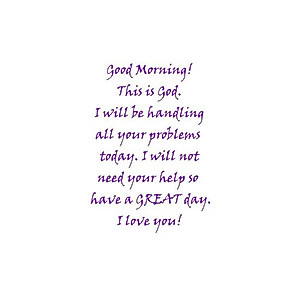 Good Morning!
This is God.
I will be handling
all your problems
today. I will not
need your help so
have a GREAT day.
I love you!